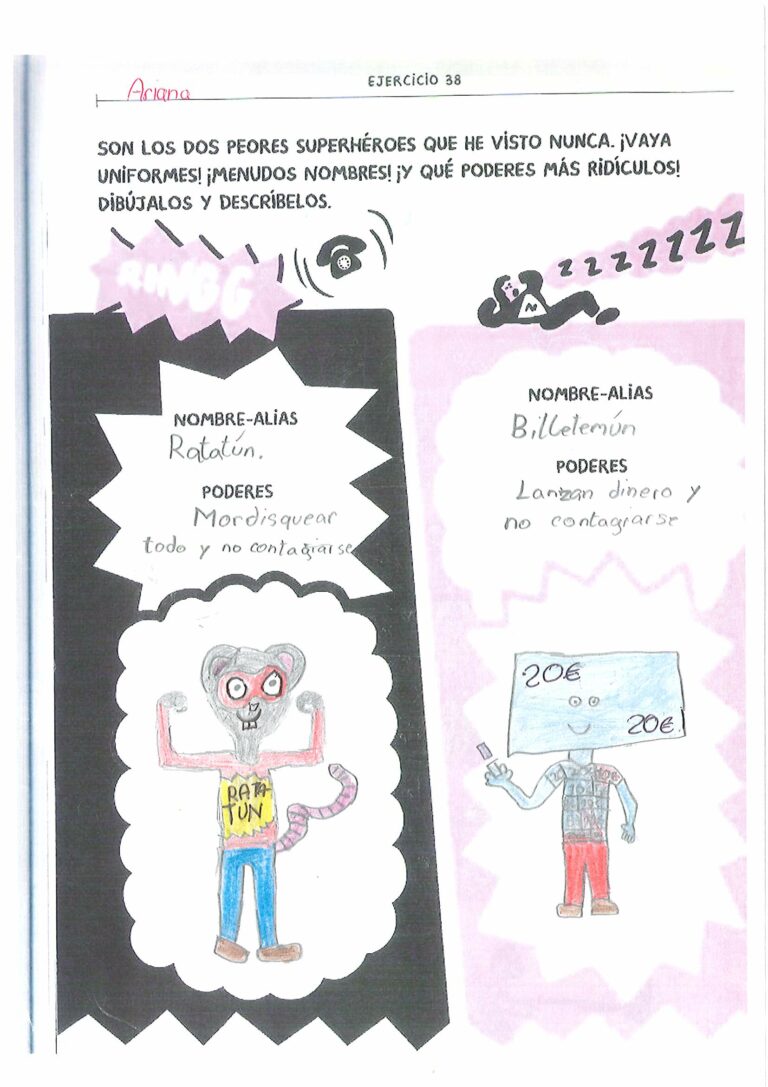 Ariana
EJERCICIO 38
SON LOS DOS PEORES SUPERHÉROES QUE HE VISTO NUNCA. ¡VAYA
UNIFORMES! ¡MENUDOS NOMBRES! ¡Y QUÉ PODERES MÁS RIDÍCULOS!
DIBÚJALOS Y DESCRÍBELOS.
RINGG
ZZZZZZZZ
N
NOMBRE-ALIAS
Ratatún.
PODERES
Mordisquear
todo y no contagiarse
NOMBRE-ALIAS
Billetemún
PODERES
Lanzan dinero y
no contagiarse
RATA
TUN
20€
20€